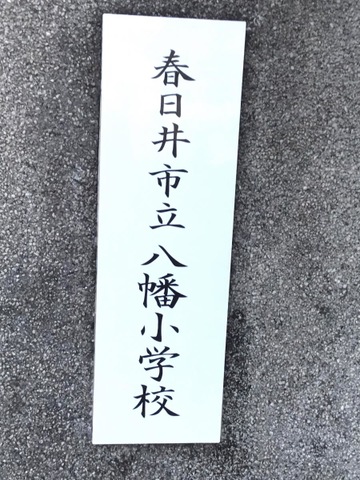 春日井市立八幡小学校